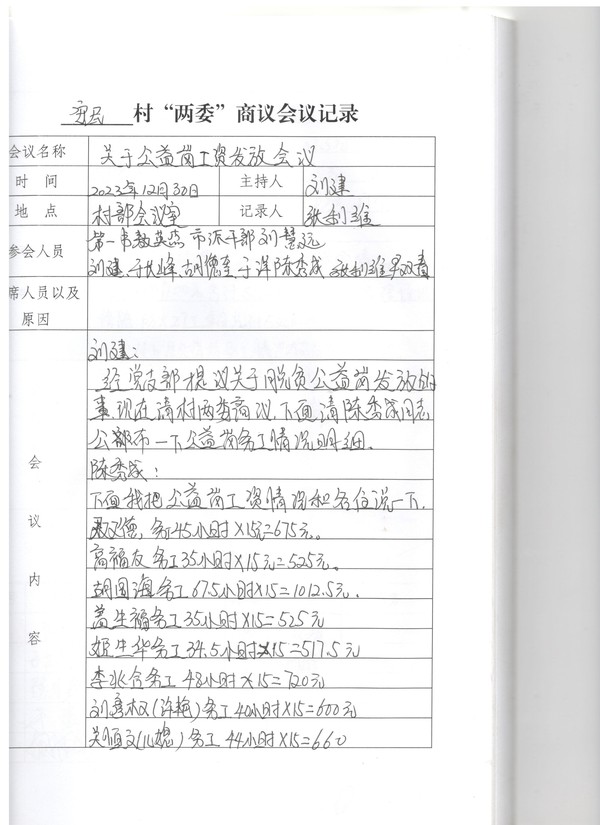 村“两委”商议会议记录
会议名称 关于公益岗工资发放会议
时 间 2023年12月30日 主持人 刘建
地 点 村部会议室 记录人 张利维
参会人员 第一书 市派干部刘慧远
刘建、于 峰、胡 于洋 陈秀成 张利维
席人员以及
原因
会议内容
刘建：
经党支部提议关于脱贫公益岗发放的
事，现在请村两委商议，下面请陈秀成同志
公布一下公益岗务工情况明细。
陈秀成：
下面我把公益岗工资情况和各位说一下，
德，务工45小时×15元=675元。
高福友务工35小时×15元=525元。
胡国海务工67.5小时×15=1012.5元.
生福务工35小时×15=525元
姬生华务工34.5小时×15=517.5元
李兆 务工48小时×15=720元
刘彦权(许艳)务工40小时×15=600元
务工44小时×15=660